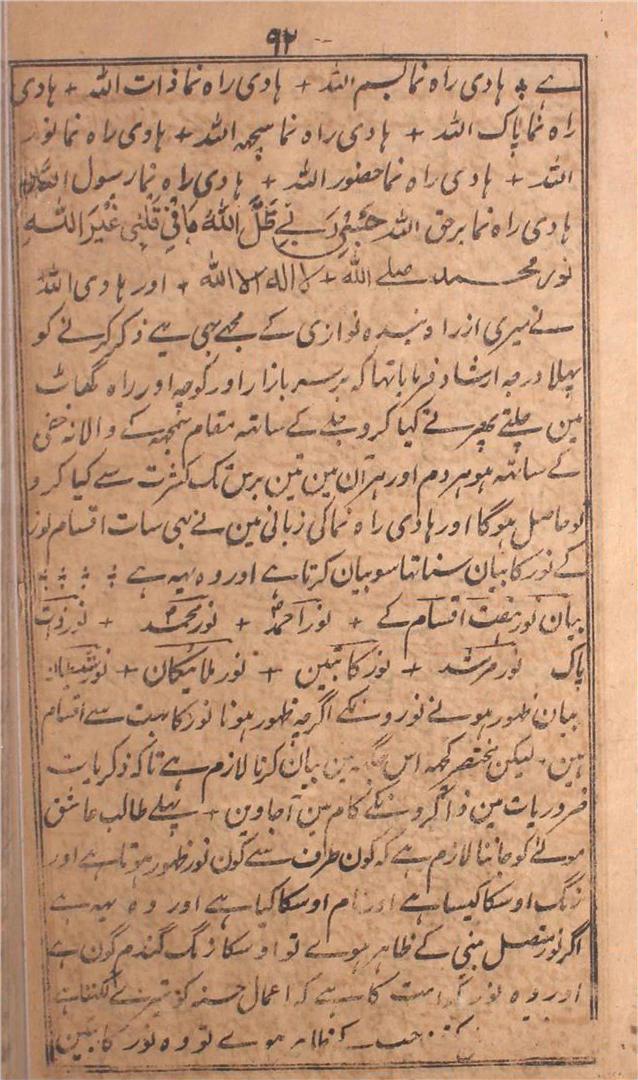 ۹۲
ہے ؞ ہادی راہ نما بسم اللہ + ہادی راہ نما ذات اللہ + ہادی
راہ نما پاک اللہ + ہادی راہ نما اللہ + ہادی راہ نما نور
اللہ + ہادی راہ نما حضور اللہ + ہادی راہ نما رسول اللہ
ہادی راہ نما برحق اللہ حَسْبِیْ رَبِّیْ جَلَّ اللّٰهُ مَا فِیْ قَلْبِیْ غَیْرَ اللّٰهِ
نور محمد صلے اللہ + لا الہ الا اللہ + اور ہادی اللہ
نے میری از راہ بندہ نوازی کے مجھے بھی یے ذکر کرنے کو
پہلا درجہ ارشاد فرمایا تہا کہ ہر سر بازار اور کوچہ اور راہ گھاٹ
مین چلتے پھرتے کیا کرو جلے کے ساتہہ مقام کے والانہ خفی
کے ساتہہ ہو ہر دم اور ہر آن مین تین برس تک کثرت سے کیا کرو
تو حاصل ہوگا اور ہادی راہ نما کی زبانی مین نے بہی سات اقسام نور
کے نور کا بیان سنا تہا سو بیان کرتا ہے اور وہ یہہ ہے ؞ ؞ ؞ ؞
بیان نور ہفت اقسام کے + نور احمدؐ + نور محمدؐ + نور ذات
پاک نور مرشد + نور کاتبین + نور ملائکان + نور شیطان
بیان ظہور ہونے نورونکے اگرچہ ظہور ہونا نور کا بہت سے اقسام
ہین + لیکن مختصر کچہہ اس جگہ مین بیان کرنا لازم ہے تاکہ ذکریات
ضروریات مین ذاکرونکے کام مین آجاوین + پہلے طالب عاشق
مولے کو جاننا لازم ہے کہ کون طرف سے کون نور ظہور ہوتا ہے اور
رنگ اوسکا کیسا ہے اور نام اوسکا کیا ہے اور وہ یہہ ہے
اگر نور متصل بینی کے ظاہر ہوے تو اوسکا رنگ گندم گون ہے
اور وہ نور کا ہے کہ اعمال حسنہ کو تیرے لکہتا ہے
کے ظاہر ہوے تو وہ نور کاتبین